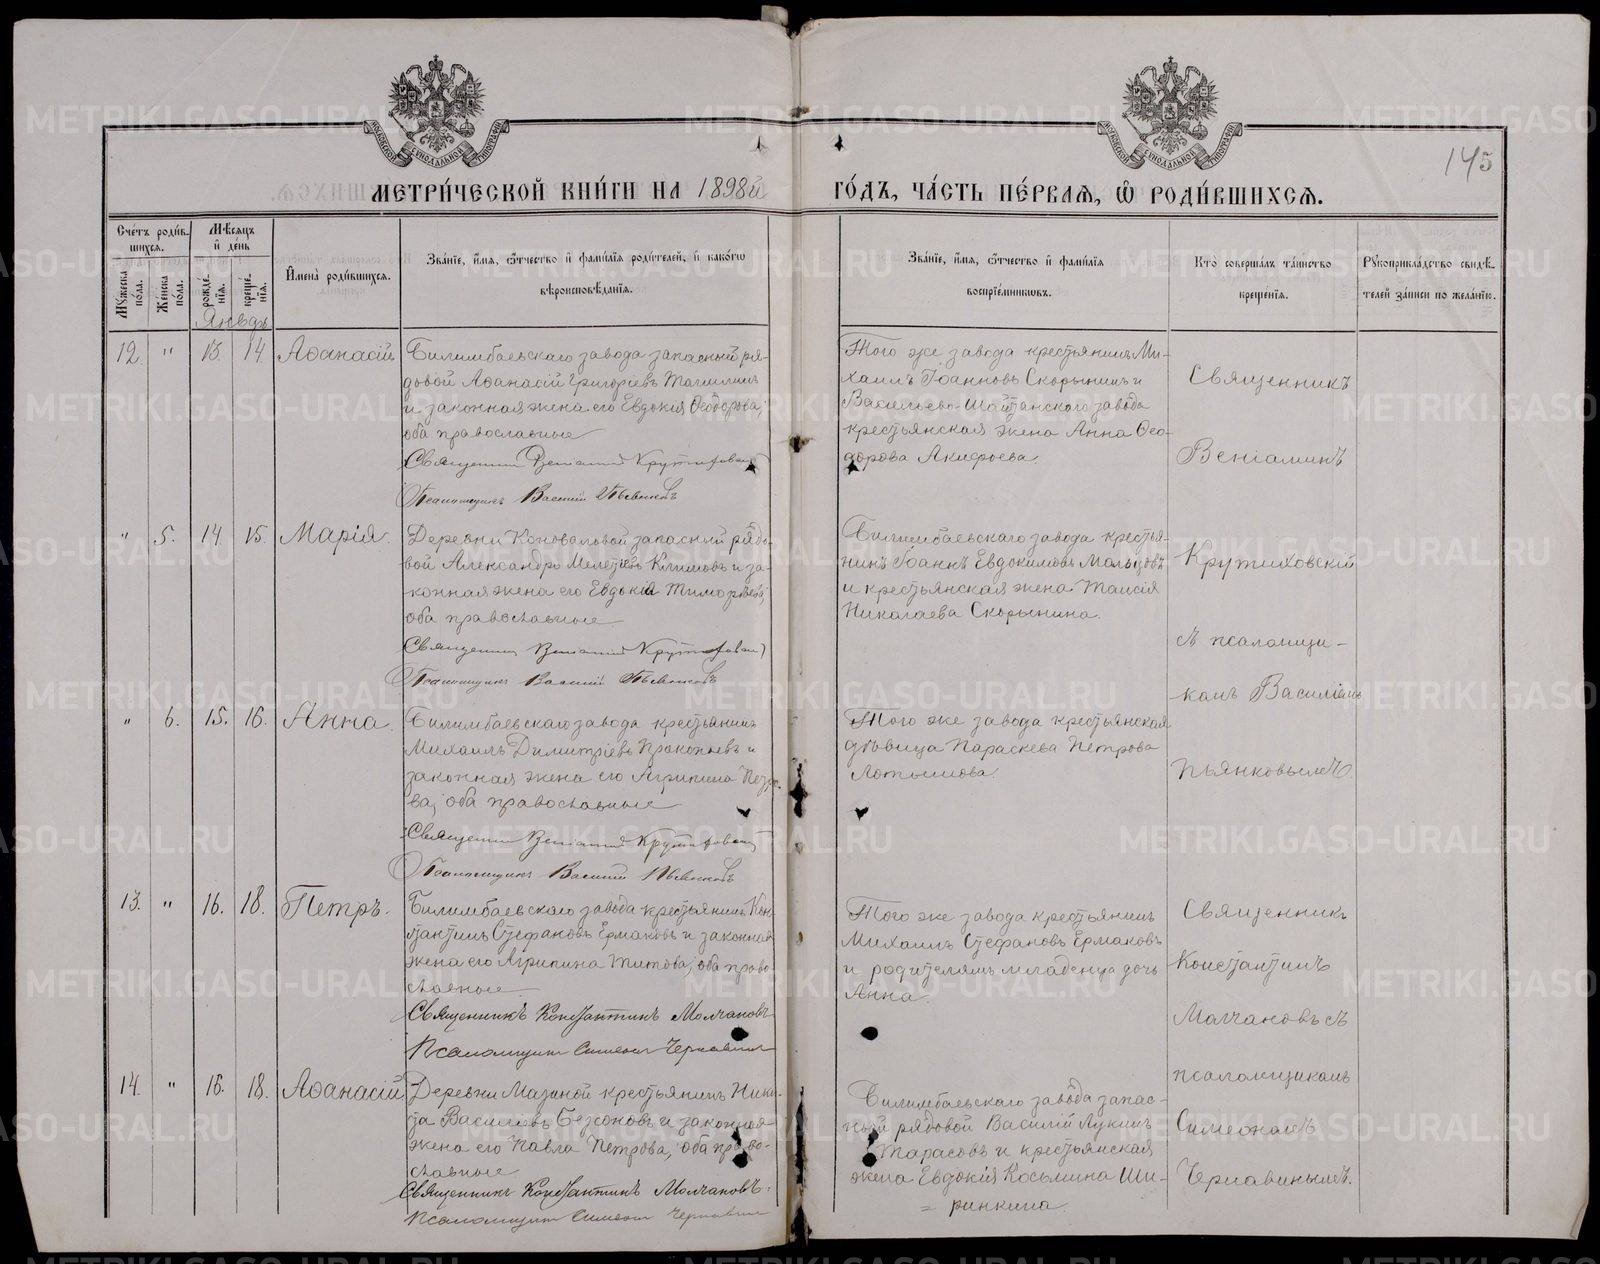 145
МЕТРИ́ЧЕСКОЙ КНИ́ГИ НА 1898й ГО́ДЪ, ЧА́СТЬ ПЕ́РВАЯ, Ѡ РОДИ́ВШИХСЯ.
Сче́тъ роди́вшихся.
Му́жеска пола.
Же́нска по́ла.
Мѣ́сяцъ и де́нь
рожде́нія.
креще́нія.
Имена̀ роди́вшихся.
Зва́ніе, и́мя, ѻ́тчество и фами́лія роди́телей, и како́гѡ
вѣроисповѣ́данія.
Зва́ніе, и́мя, ѻ́тчество и фами́лія
воспріе́мниковъ.
Кто̀ соверша́лъ та́инство
креще́нія.
Рукоприкла́дство свидѣ́-
телей за́писи по жела́нію.
Январь
12. " 13. 14. Аѳанасій
Билимбаевскаго завода запасный ря-
довой Аѳанасій Григоріевъ
и законная жена его Евдокія Ѳеодорова,
оба православные
Священникъ Веніаминъ Крутиховскій
Псаломщикъ Василій Пьянковъ
Того же завода крестьянинъ Ми-
хаилъ Іоанновъ Скорынинъ и
Васильево-Шайтанскаго завода
крестьянская жена Анна Ѳео-
дорова Акифьева.
Священникъ
Веніаминъ
" 5. 14. 15. Марія.
Деревни Коноваловой запасный рядо-
вой Александръ Мелетіевъ Климовъ и за-
конная жена его Евдокія Тимоѳеева,
оба православные
Священникъ Веніаминъ Крутиховскій
Псаломщикъ Василій Пьянковъ
Билимбаевскаго завода крестья-
нинъ Іоаннъ Евдокимовъ
и крестьянская жена Таисія
Николаева Скорынина.
Крутиховскій
съ псаломщи-
комъ Василіемъ
" 6. 15. 16. Анна.
Билимбаевскаго завода крестьянинъ
Михаилъ Димитріевъ Прокопьевъ и
законная жена его Агрипина Петро-
ва, оба православные
Священникъ Веніаминъ Крутиховскій
Псаломщикъ Василій Пьянковъ
Того же завода крестьянская
дѣвица Параскева Петрова
Латышова.
Пьянковымъ.
13. " 16. 18. Петръ.
Билимбаевскаго завода крестьянинъ Кон-
стантинъ Стефановъ Ермаковъ и законная
жена его Агрипина Титова, оба право-
славные
Священникъ Константинъ Молчановъ
Псаломщикъ Симеонъ Чернавинъ
Того же завода крестьянинъ
Михаилъ Стефановъ Ермаковъ
и родителямъ младенца дочь
Анна.
Священникъ
Константинъ
Молчановъ съ
14. " 16. 18. Аѳанасій
Деревни Мазиной крестьянинъ Ники-
та Василіевъ Безсоновъ и законная
жена его Павла Петрова, оба право-
славные
Священникъ Константинъ Молчановъ.
Псаломщикъ Симеонъ Чернавинъ
Билимбаевскаго завода запас-
ный рядовой Василій Лукинъ
Тарасовъ и крестьянская
жена Евдокія Косьмина Ши-
= ринкина.
псаломщикомъ
Симеономъ
Чернавинымъ.
METRIKI.GASO-URAL.RU